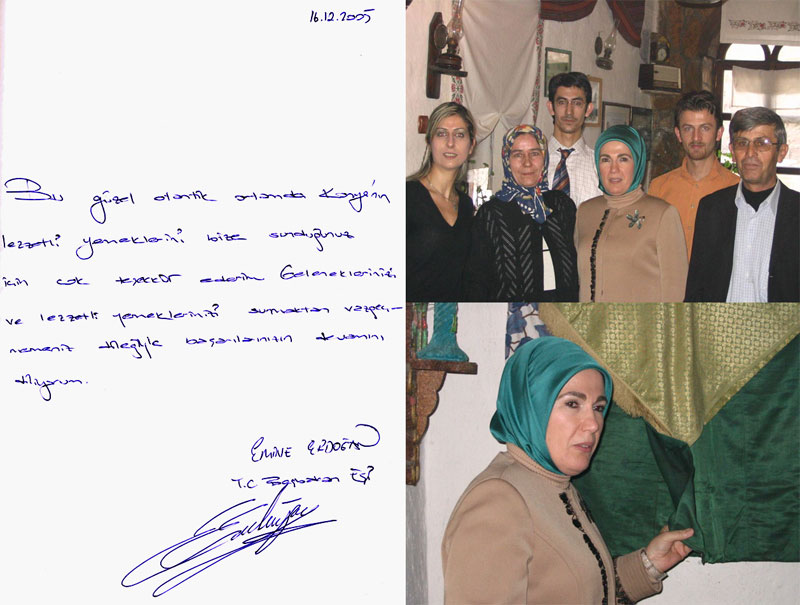 16.12.2005
Bu güzel otantik ortamda Konya'nın
lezzetli yemeklerini bize sunduğunuz
için çok teşekkür ederim Geleneklerinizi
ve lezzetli yemeklerinizi sunmaktan vazgeç-
memeniz dileğiyle başarılarınızın devamını
diliyorum.
EMİNE ERDOĞAN
T.C Başbakan Eşi